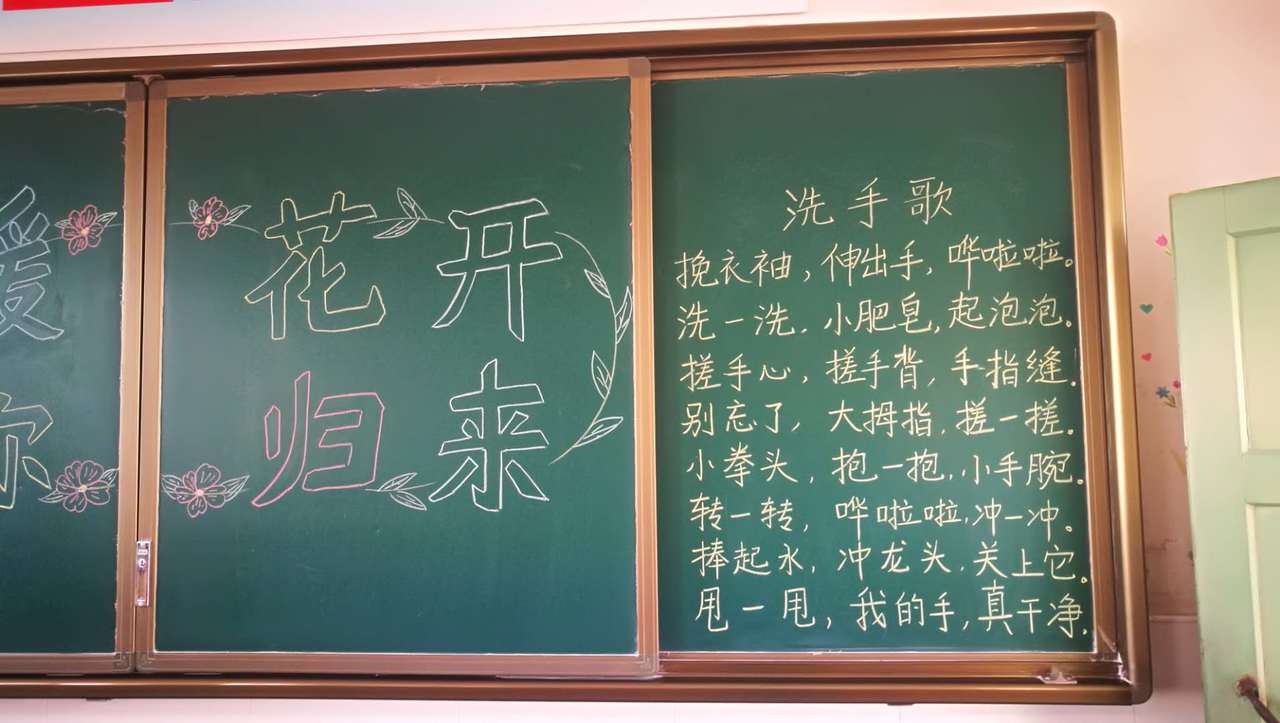 暖 花开
你 归来
洗手歌
挽衣袖，伸出手，哗啦啦。
洗一洗，小肥皂，起泡泡。
搓手心，搓手背，手指缝。
别忘了，大拇指，搓一搓。
小拳头，抱一抱，小手腕。
转一转，哗啦啦，冲一冲。
捧起水，冲龙头，关上它。
甩一甩，我的手，真干净。